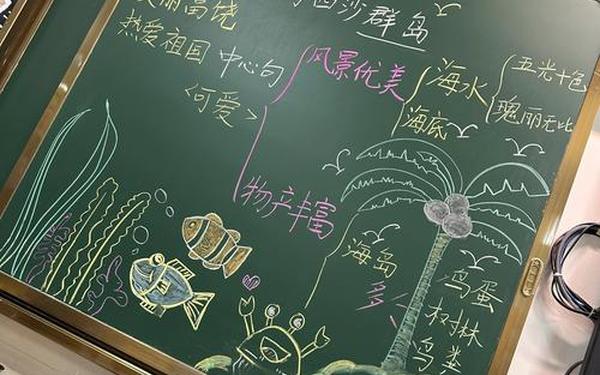 美丽富饶
西沙群岛
热爱祖国 中心句
<可爱>
风景优美
海水
五光十色
瑰丽无比
海底
物产丰富
海岛
多
鸟蛋
树林
鸟粪